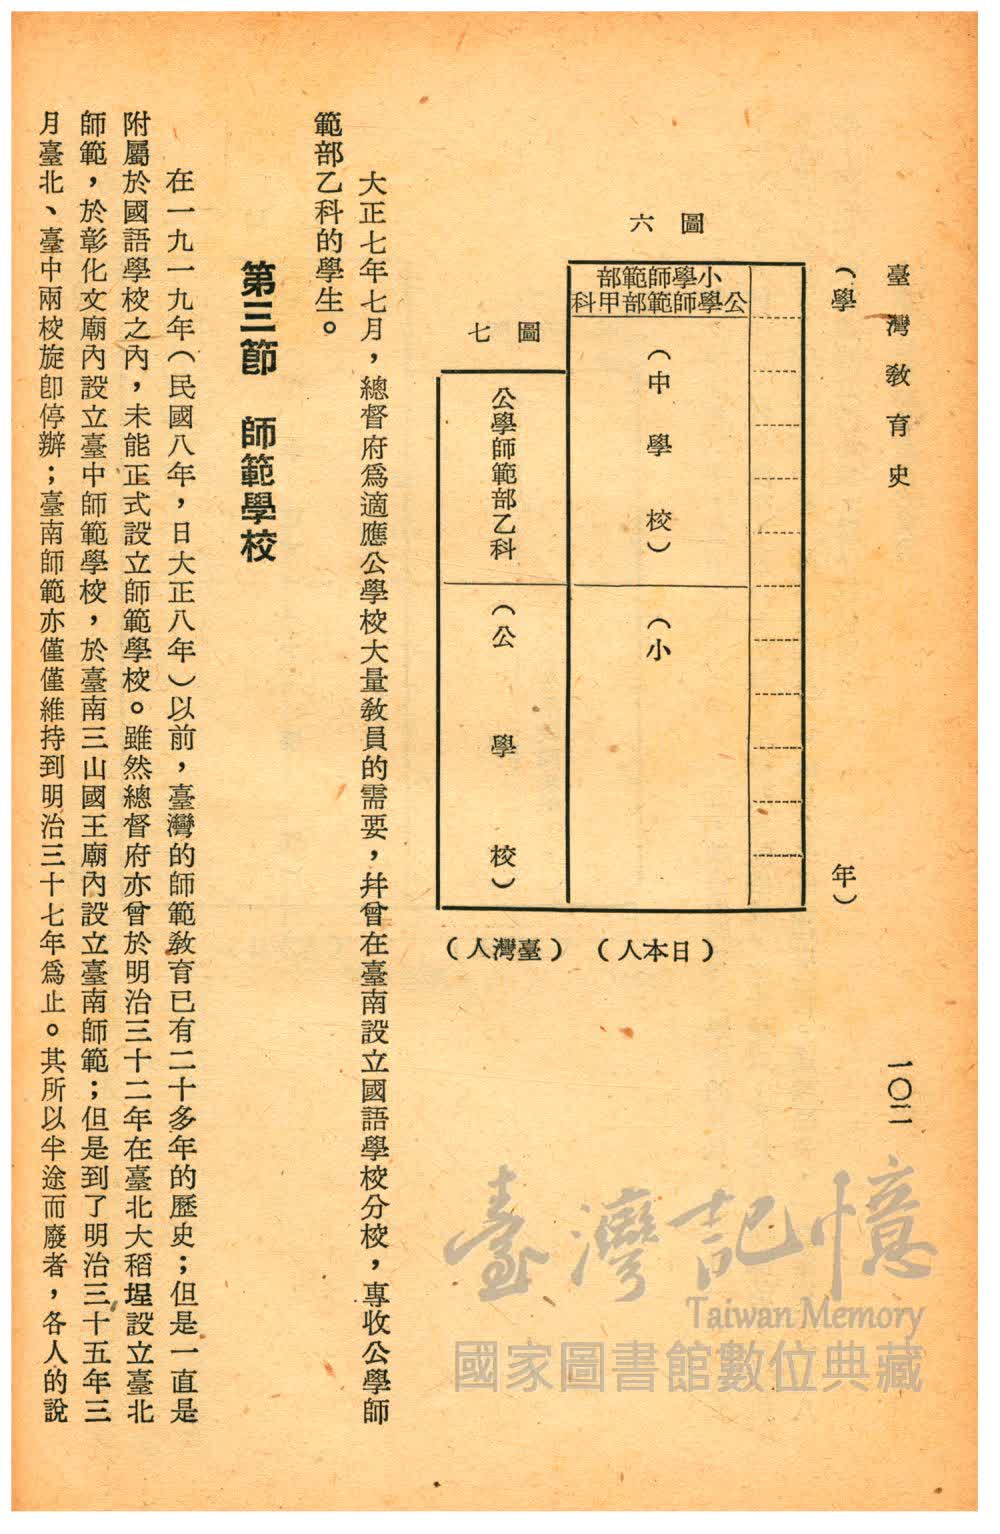 臺灣教育史
一〇二
（學年）
圖六
小學師範部
公學師範部甲科
（中學校）
（小
（日本人）
圖七
公學師範部乙科
（公學校）
（臺灣人）
大正七年七月，總督府爲適應公學校大量教員的需要，幷曾在臺南設立國語學校分校，專收公學師
範部乙科的學生。
第三節　師範學校
在一九一九年（民國八年，日大正八年）以前，臺灣的師範教育已有二十多年的歷史；但是一直是
附屬於國語學校之內，未能正式設立師範學校。雖然總督府亦曾於明治三十二年在臺北大稻埕設立臺北
師範，於彰化文廟內設立臺中師範學校，於臺南三山國王廟內設立臺南師範；但是到了明治三十五年三
月臺北、臺中兩校旋卽停辦；臺南師範亦僅僅維持到明治三十七年爲止。其所以半途而廢者，各人的說
臺灣記憶
Taiwan Memory
國家圖書館數位典藏